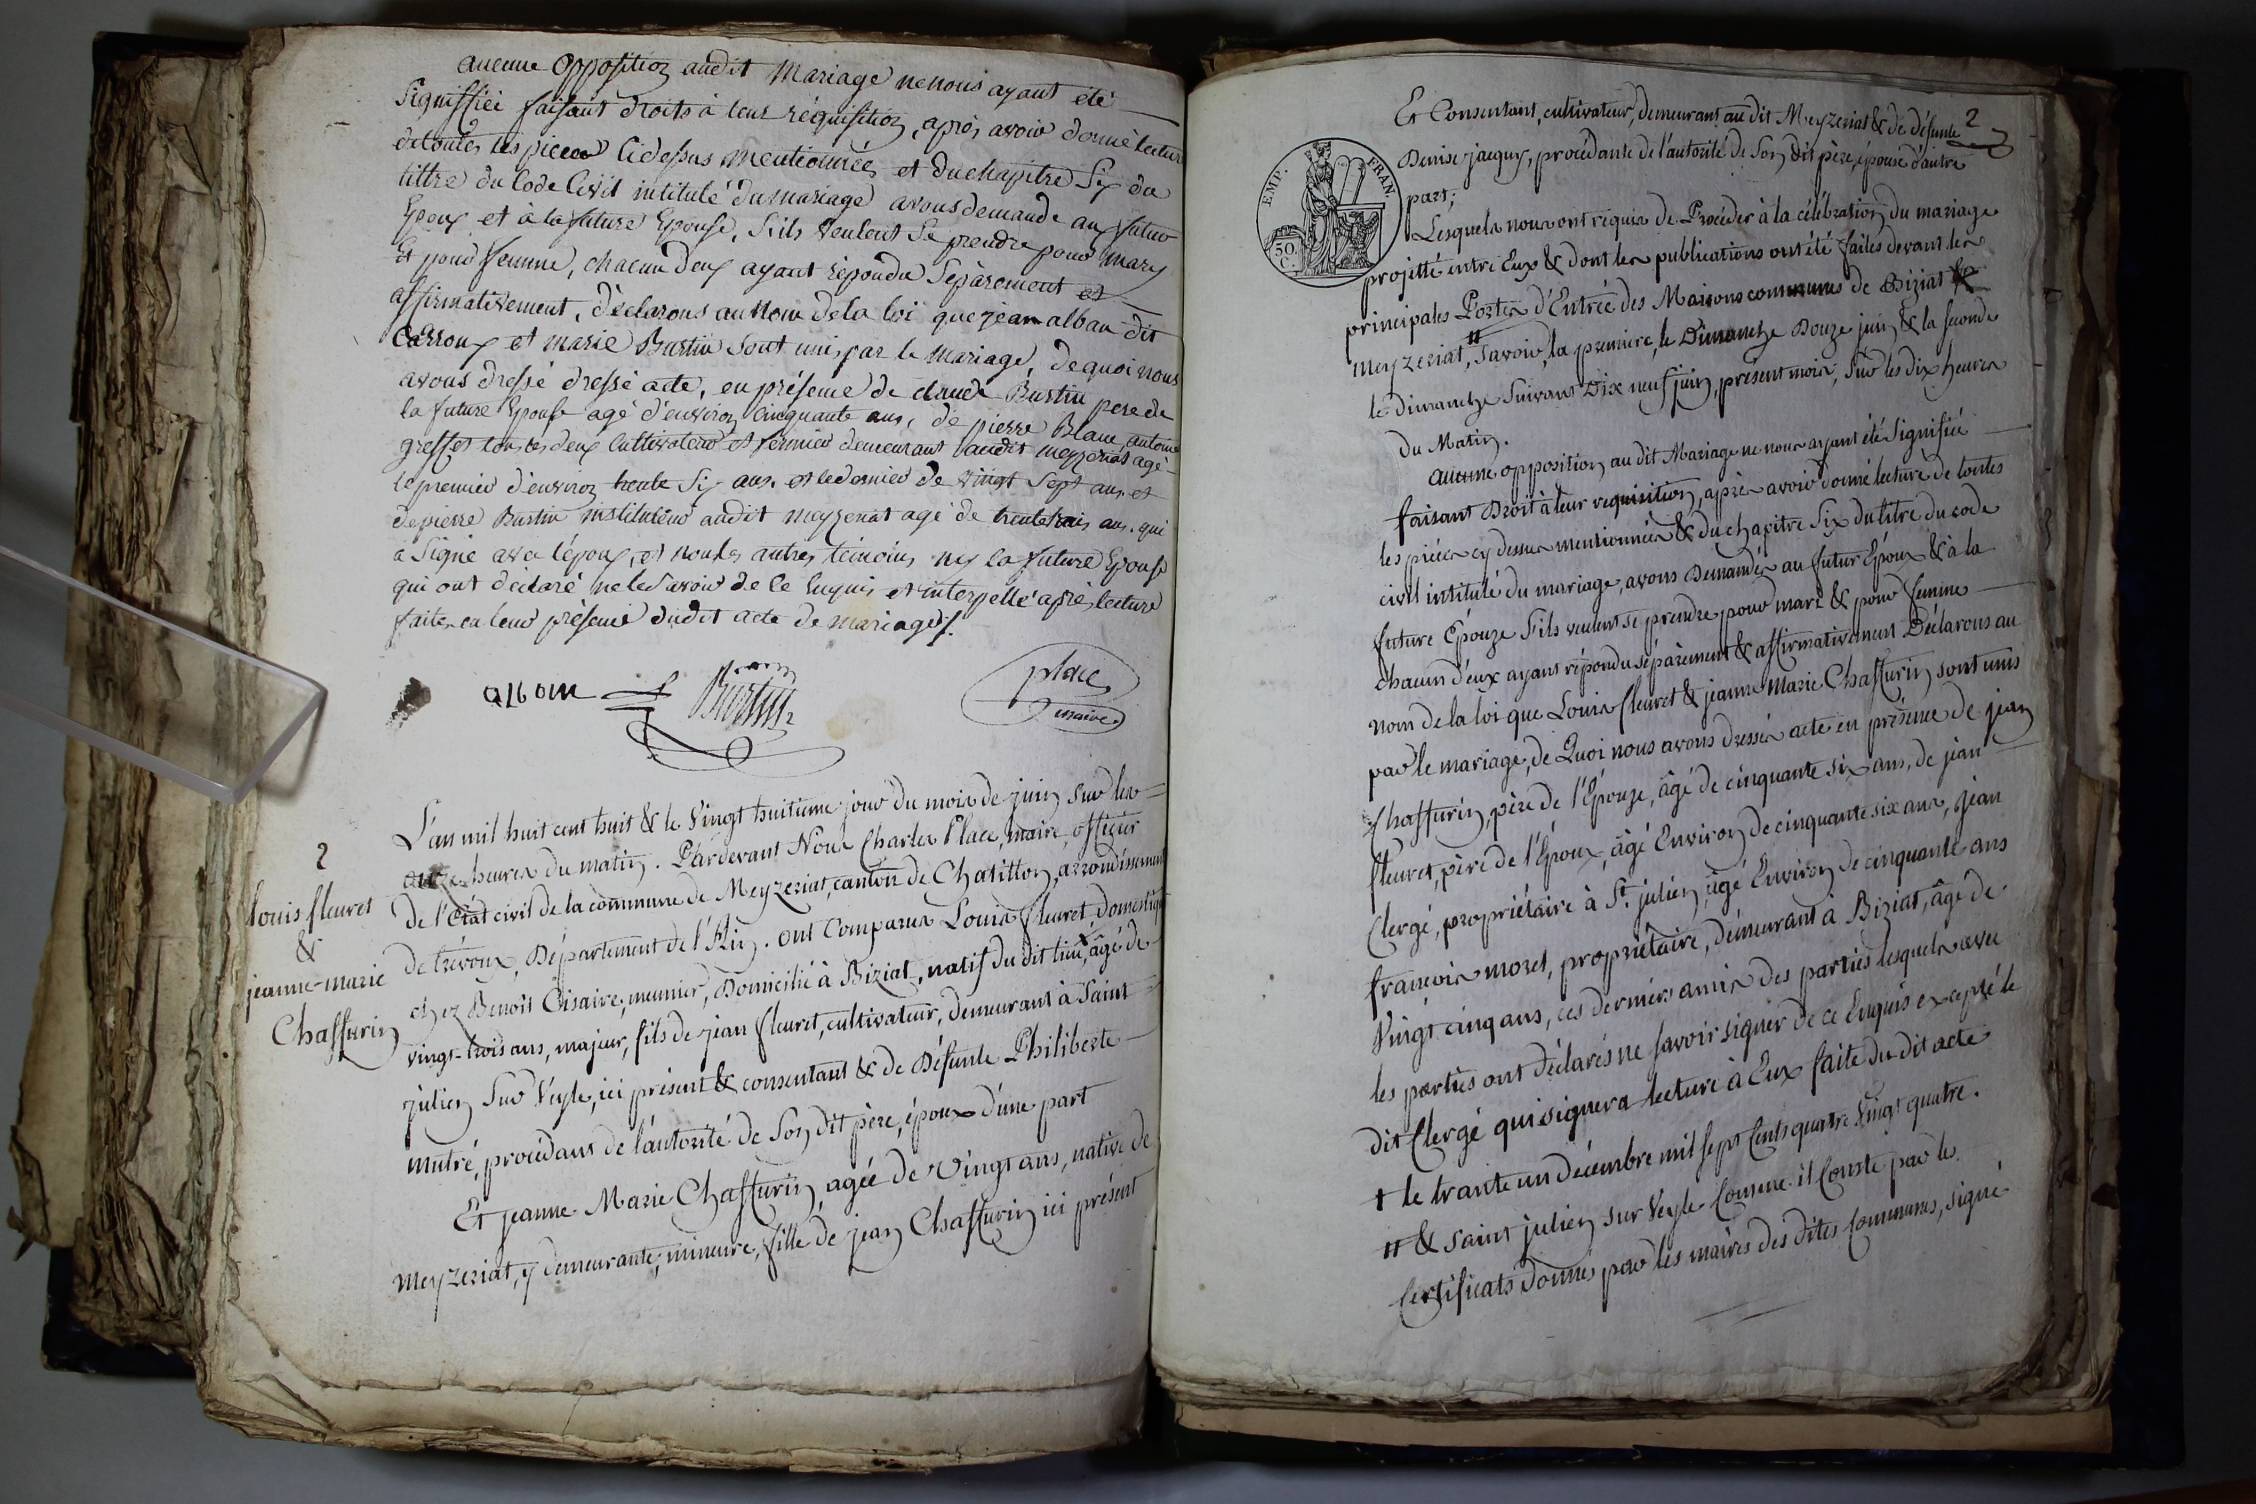 aucune opposition audit Mariage ne nous ayant été
signiffiée faisant droits à leur réquisition, après avoir donné lecture
de toutes les pieces Cidessus mentionnées et du chapitre Six du
tittre du Code Civil intitulé du mariage avons demande au futur
Epoux et à la future Epouse, s'ils veulent se prendre pour mary
Et pour femme, chacun deux ayant répondu séparement et
affirmativement, déclarons au Nom de la loi que jean alban dit
Carroux et marie Burtin sont unis par le Mariage, de quoi nous
avons dressé dressé acte, en présence de claude Burtin pere de
la future Epouse agé d'environ Cinquante ans, de pierre Blanc antoine
greffet tous les deux Cultivateur et fermier demeurant audit meyzeriat agé
le premier d'environ trente Six ans. et le dernier de vingt Sept ans et
de pierre Burtin instituteur audit meyzeriat agé de trente trois ans. qui
a Signé avec l'époux, et non les autres témoins ny la future Epouse
qui ont déclaré ne le savoir de ce Enquis et interpellé après lecture
faite en leur présence dudit acte de mariage /.
albam Burtin place
maire
2
louis fleuret
&
jeanne-marie
Chaffurin
L'an mil huit cent huit & le Vingt huitieme jour du mois de juin sur les
onze heures du matin. Pardevant Nous Charles Place, maire, officier
de l'Etat civil de la commune de Meyzeriat, canton de Chatillon, arrondissement
de trévoux, Département de l'Ain. ont Comparus Louis fleuret, domestique
chez Benoît Cisaire, meunier, Domicilié à Biziat, natif du dit lieu, † âgé de
vingt-trois ans, majeur, fils de jean fleuret, cultivateur, demeurant à Saint
julien Sur Veyle, ici présent & consentant & de Défunte Philiberte
mutré, procédant de l'autorité de Son dit père, époux d'une part
Et jeanne Marie Chaffurin, agée de Vingt ans, native de
Meyzeriat, y demeurante, mineure, fille de jean Chaffurin ici présent
2
Et Consentant, cultivateur, demeurant au dit Meyzeriat & de défunte
EMP. FRAN.
50.
C.
Denise jacquy, procédante de l'autorité de Son dit père, épouse d'autre
part;
Lesquels nous ont requis de Procéder à la célébration du mariage
projetté entre Eux & dont les publications ont été faites devant les
principales Portes d'Entrée des Maisons communes de Biziat &
Meyzeriat, # Savoir, la premiere, le Dimanche Douze juin & la seconde
le dimanche Suivant Dix neuf juin, present mois, Sur les dix heures
du Matin.
aucune opposition au dit Mariage ne nous ayant été Signifiée
faisant Droit à leur requisition, après avoir donné lecture de toutes
les pièces cy dessus mentionnées & du chapitre Six du titre du code
civil intitulé du mariage, avons Demandés au futur Epoux & à la
future Epouze S'ils veulent se prendre pour mari & pour femme
chacun d'eux ayant répondu séparement & affirmativement Déclarons au
nom de la loi que Louis fleuret & jeanne Marie Chaffurin sont unis
par le mariage, de Quoi nous avons dressés acte en présence de jean
Chaffurin, père de l'Epouze, âgé de cinquante six ans, de jean
fleuret, père de l'Epoux, âgé Environ de cinquante six ans, jean
Clergé, propriétaire à St. julien, âgé Environ de cinquante ans
françois moret, propriétaire, démeurant à Biziat, âgé de
Vingt cinq ans, ces derniers amis des parties lesquels avec
les parties ont Déclarés ne savoir signer de ce Enquis excepté le
dit Clergé qui signera lecture à Eux faite du dit acte
† le trante un décembre mil sept Cents quatre Vingt quatre.
# & saint julien sur Veyle Comme il Conste par les
Certificats donnés par les maires des dites Communes, signé